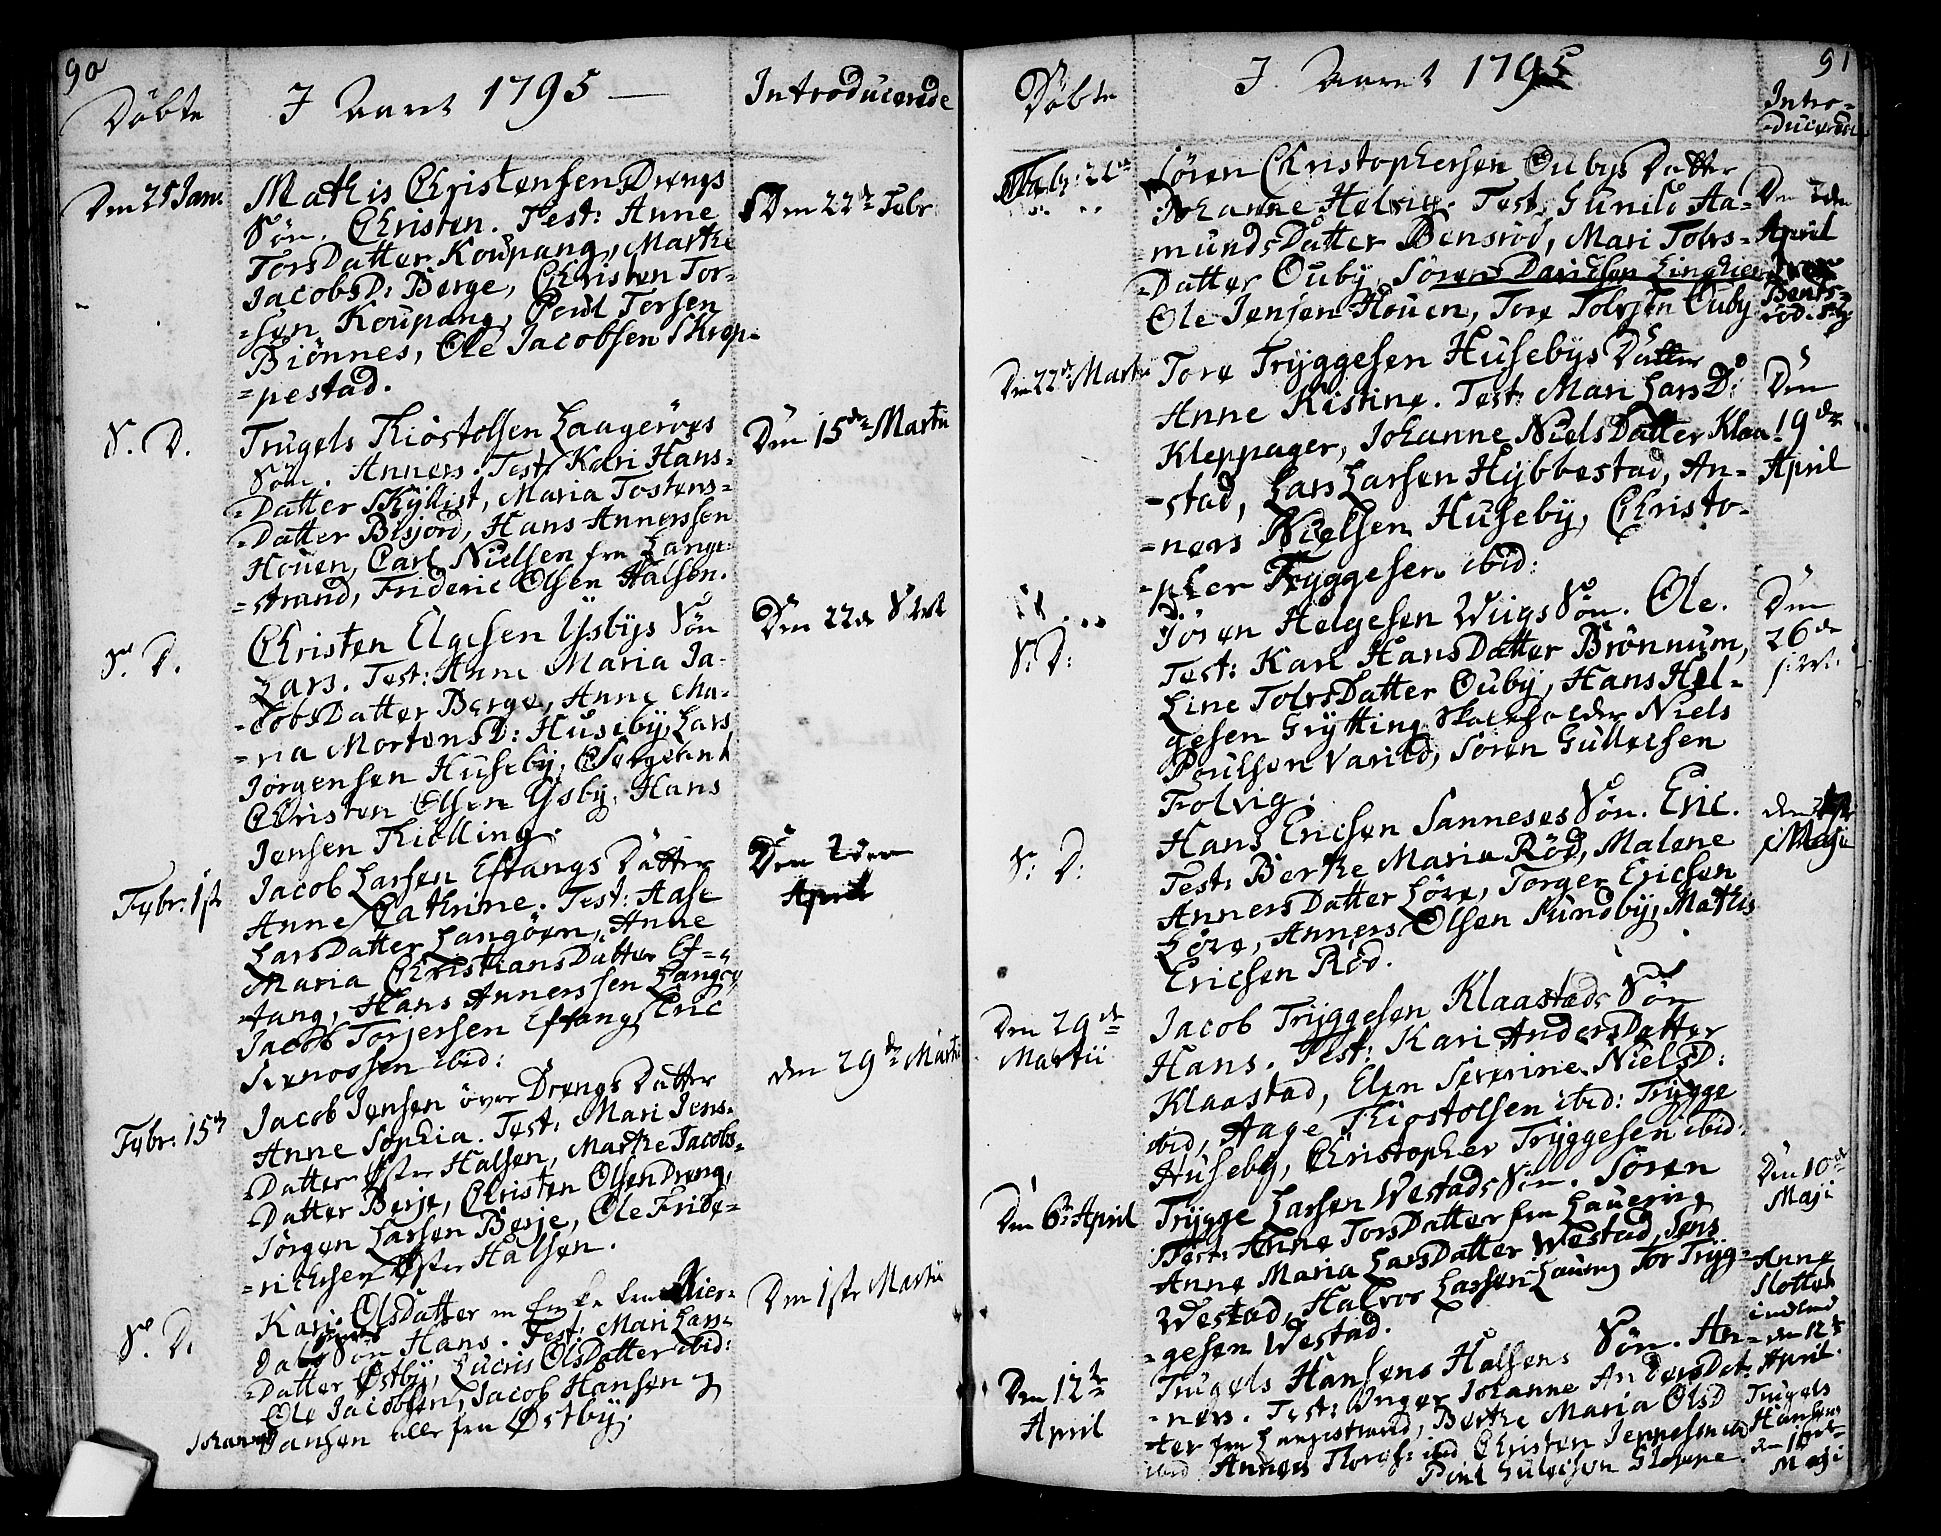 90
Döbte
I Aaret 1795 —
Introducerede
Den 25 Jan:
Mathis Christensen Drengs
Sön. Christen. Test: Anne
TorsDatter Koupang, Marthe
JacobsD: Berge, Christen Tor-
=sen Koupang, Poul Torsen
Biönnes, Ole Jacobsen Skrep-
=pestad.
Den 22de Febr:
S. D.
Trugels Kiöstolsen Laageröes
Sön. Anners. Test: Kari Hans-
=Datter Skÿlist, Maria Tostens-
=Datter Bisjord, Hans Annerssen
Houen, Carl Nielsen fra Lange-
=strand, Frideric Olsen Halsen.
Den 15de Martii
S. D.
Christen Elgesen Ÿsbÿs Sön
Lars. Test: Anne Maria Ja-
=cobsDatter Berge, Anne Ma-
=ria MortensD: Husebÿ, Lars
Jörgensen Husebÿ, Sergeant
Christen Olsen Ÿsbÿ, Hans
Jensen Kiölling.
Den 22de
Febr: 1ste
Jacob Larsen Eftangs Datter
Anne Cathrine. Test: Aase
LarsDatter Langöen, Anne
Maria ChristiansDatter Ef=
tang, Hans Annerssen Langöe
Jacob Torjersen Eftang, Eric
ibid:
Den 2den
April
Febr: 15de
Jacob Jensen över Drengs Datter
Anne Sophia. Test: Mari Jens-
=Datter Öster Halsen, Marthe Jacobs-
=Datter Berje, Christen Olsen Dreng,
Jörgen Larsen Berje, Ole Fride=
=richsen Öster Halsen.
den 29de Martii
S. D.
Kari OlsDatter en Enke fra
Sön Hans. Test: Mari Lars-
=Datter Östbÿ, Lucris OlsDatter ibid:
Ole Jacobsen, Jacob Hansen og
Johannes Jansen alle fra Östbÿ.
Den 1ste Martii
91
Döbte
I Aaret 1795
Intro=
=ducerede
Sören Christophersen Oubÿs Datter
Johanne Helvig. Test: Gunild Aa-
=mundsDatter Bensröd, Mari Tolvs-
=Datter Oubÿ, Sören Davidsen
Ole Jensen Houen, Tore Tolvsen Oubÿ
Den 2den
April
Den 22de Martii
Tore Trÿggesen Husebÿs Datter
Anne Kistine. Test: Mari LarsD:
Kleppager, Johanne NielsDatter Klaa-
=stad, Lars Larsen Hÿbbestad, An-
=ners Nielsen Husebÿ, Christo-
=pher Trÿggesen ibid:
Den
19de
April
S. D:
Sören Helgesen Wiigs Sön. Ole.
Test: Kari HansDatter Brönnum,
Line TolvsDatter Oubÿ, Hans Hel-
gesen Grÿtting, Skoleholder Niels
Poulsen Varild, Sören Gullersen
Tolvig.
Den
26de
S: D:
Hans Ericsen Sanneses Sön. Eric.
Test: Berthe Maria Röd, Malene
AnnersDatter Löve, Torger Ericsen
Löve, Anners Olsen Sundbÿ, Mathis
Ericsen Röd.
Maji
Den 29de
Martii
Jacob Trÿggesen Klaastads Sön
Hans. Test: Kari AndersDatter
Klaastad, Elen Severine NielsD:
ibid, Aage Kiostolsen ibid: Trÿgge
Husebÿ, Christopher Trÿggesen ibid:
Den 6te April
Trÿgge Larsen Westads Sön. Sören
Test: Anne TorsDatter fra Lauering
Anne Maria LarsDatter Westad, Jens
Westad, Halvor Larsen Lauering Tor Trÿg-
=gesen Westad.
Den 10de
Maji
Den 12te
April
Trugels Hansens Halsens Sön. An=
=ners. Test: Inger Johanne AndersDat:
=ter fra Langestrand, Berthe Maria OlsD
ibid Anners ibid Christen Jeppesen ibid
Poul
Anne
den 12te
April.
Trugels
Hansens
den 10de
Maji